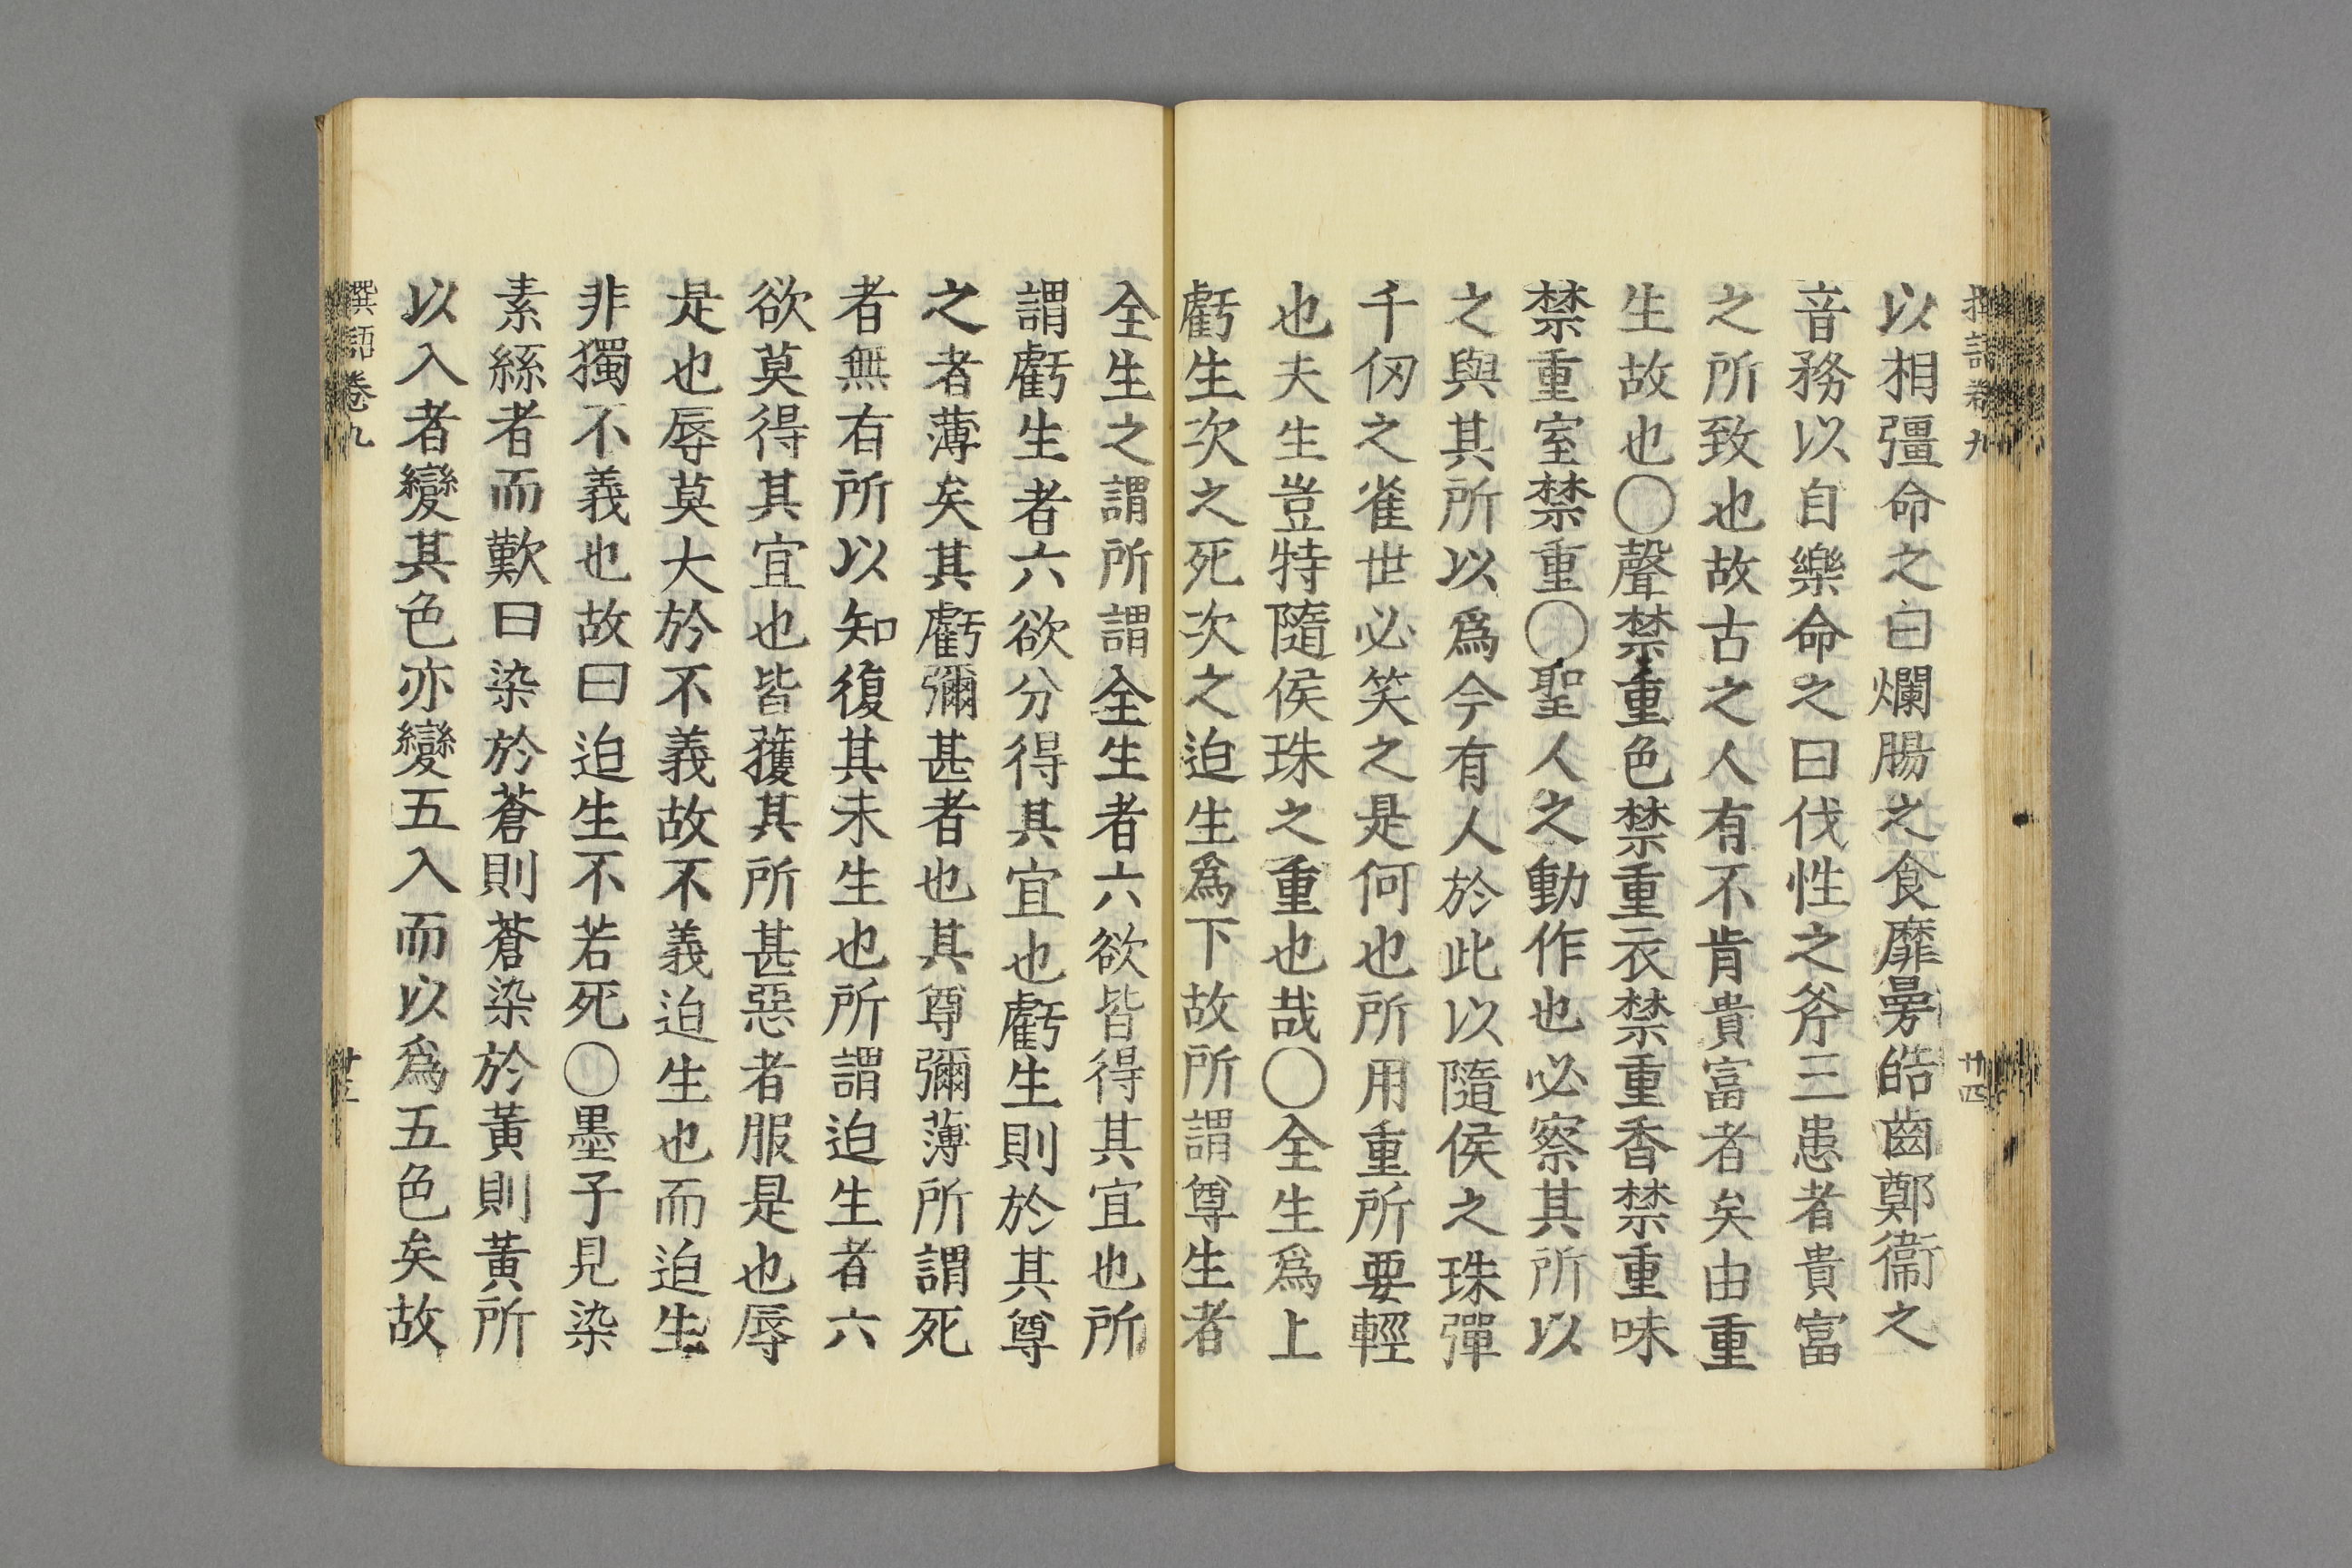 撰語卷九 廿四
以相彊命之曰爛腸之食靡曼皓齒鄭衞之
音務以自樂命之曰伐性之斧三患者貴富
之所致也故古之人有不肯貴富者矣由重
生故也〇聲禁重色禁重衣禁重香禁重味
禁重室禁重〇聖人之動作也必察其所以
之與其所以爲今有人於此以隨侯之珠彈
千仞之雀世必笑之是何也所用重所要輕
也夫生豈特隨侯珠之重也哉〇全生爲上
虧生次之死次之迫生爲下故所謂尊生者
全生之謂所謂全生者六欲皆得其宜也所
謂虧生者六欲分得其宜也虧生則於其尊
之者薄矣其虧彌甚者也其尊彌薄所謂死
者無有所以知復其未生也所謂迫生者六
欲莫得其宜也皆獲其所甚惡者服是也辱
是也辱莫大於不義故不義迫生也而迫生
非獨不義也故曰迫生不若死〇墨子見染
素絲者而歎曰染於蒼則蒼染於黃則黃所
以入者變其色亦變五入而以爲五色矣故
撰語卷九